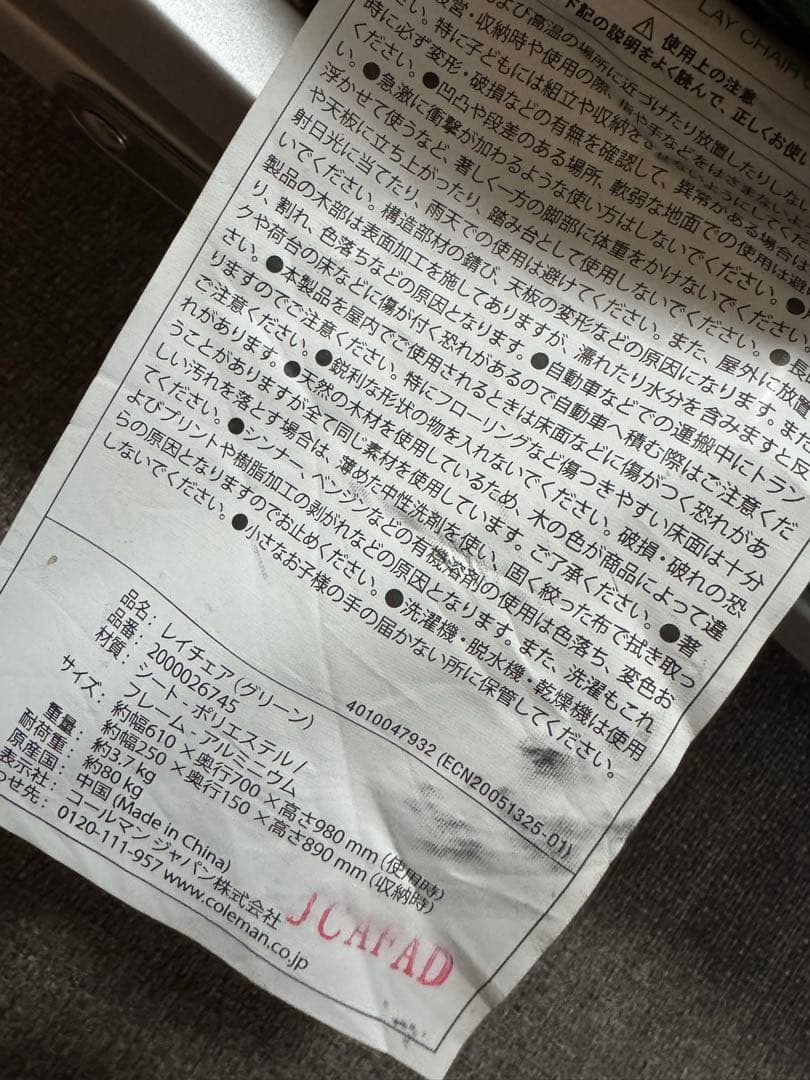 LAY CHAIR
⚠ 使用上の注意
下記の説明をよく読んで、正しくお使い
および高温の場所に近づけたり放置したりしない
設営・収納時や使用の際、指や手などをはさまないよ
い。特に子どもには組立や収納をさせないようにしてくだ
時に必ず変形・破損などの有無を確認して、異常がある場合は
ください。●凹凸や段差のある場所、軟弱な地面での使用は避け
い。●急激に衝撃が加わるような使い方はしないでください。●
浮かせて使うなど、著しく一方の脚部に体重をかけないでください。
や天板に立ち上がったり、踏み台として使用しないでください。●長
射日光に当てたり、雨天での使用は避けてください。また、屋外に放置
いでください。構造部材の錆び、天板の変形などの原因になります。また
製品の木部は表面加工を施してありますが、濡れたり水分を含みますと反
り、割れ、色落ちなどの原因となります。●自動車などでの運搬中にトラン
クや荷台の床などに傷が付く恐れがあるので自動車へ積む際はご注意くだ
さい。●本製品を屋内でご使用されるときは床面などに傷がつく恐れがあ
りますのでご注意ください。特にフローリングなど傷つきやすい床面は十分
ご注意ください。●鋭利な形状の物を入れないでください。破損・破れの恐
れがあります。●天然の木材を使用しているため、木の色が商品によって違
うことがありますが全て同じ素材を使用しています。ご了承ください。●著
しい汚れを落とす場合は、薄めた中性洗剤を使い、固く絞った布で拭き取っ
てください。●シンナー、ベンジンなどの有機溶剤の使用は色落ち、変色お
よびプリントや樹脂加工の剥がれなどの原因となります。また、洗濯もこれ
らの原因となりますのでお止めください。●洗濯機・脱水機・乾燥機は使用
しないでください。●小さなお子様の手の届かない所に保管してください。
4010047932 (ECN20051325-01)
品名：レイチェア（グリーン）
品番：2000026745
材質：シート - ポリエステル /
フレーム - アルミニウム
サイズ：約幅610 × 奥行700 × 高さ980 mm (使用時)
約幅250 × 奥行150 × 高さ890 mm (収納時)
重量：約3.7 kg
耐荷重：約80 kg
原産国：中国 (Made in China)
表示社：コールマン ジャパン株式会社
わせ先：0120-111-957 www.coleman.co.jp
JCAFAD